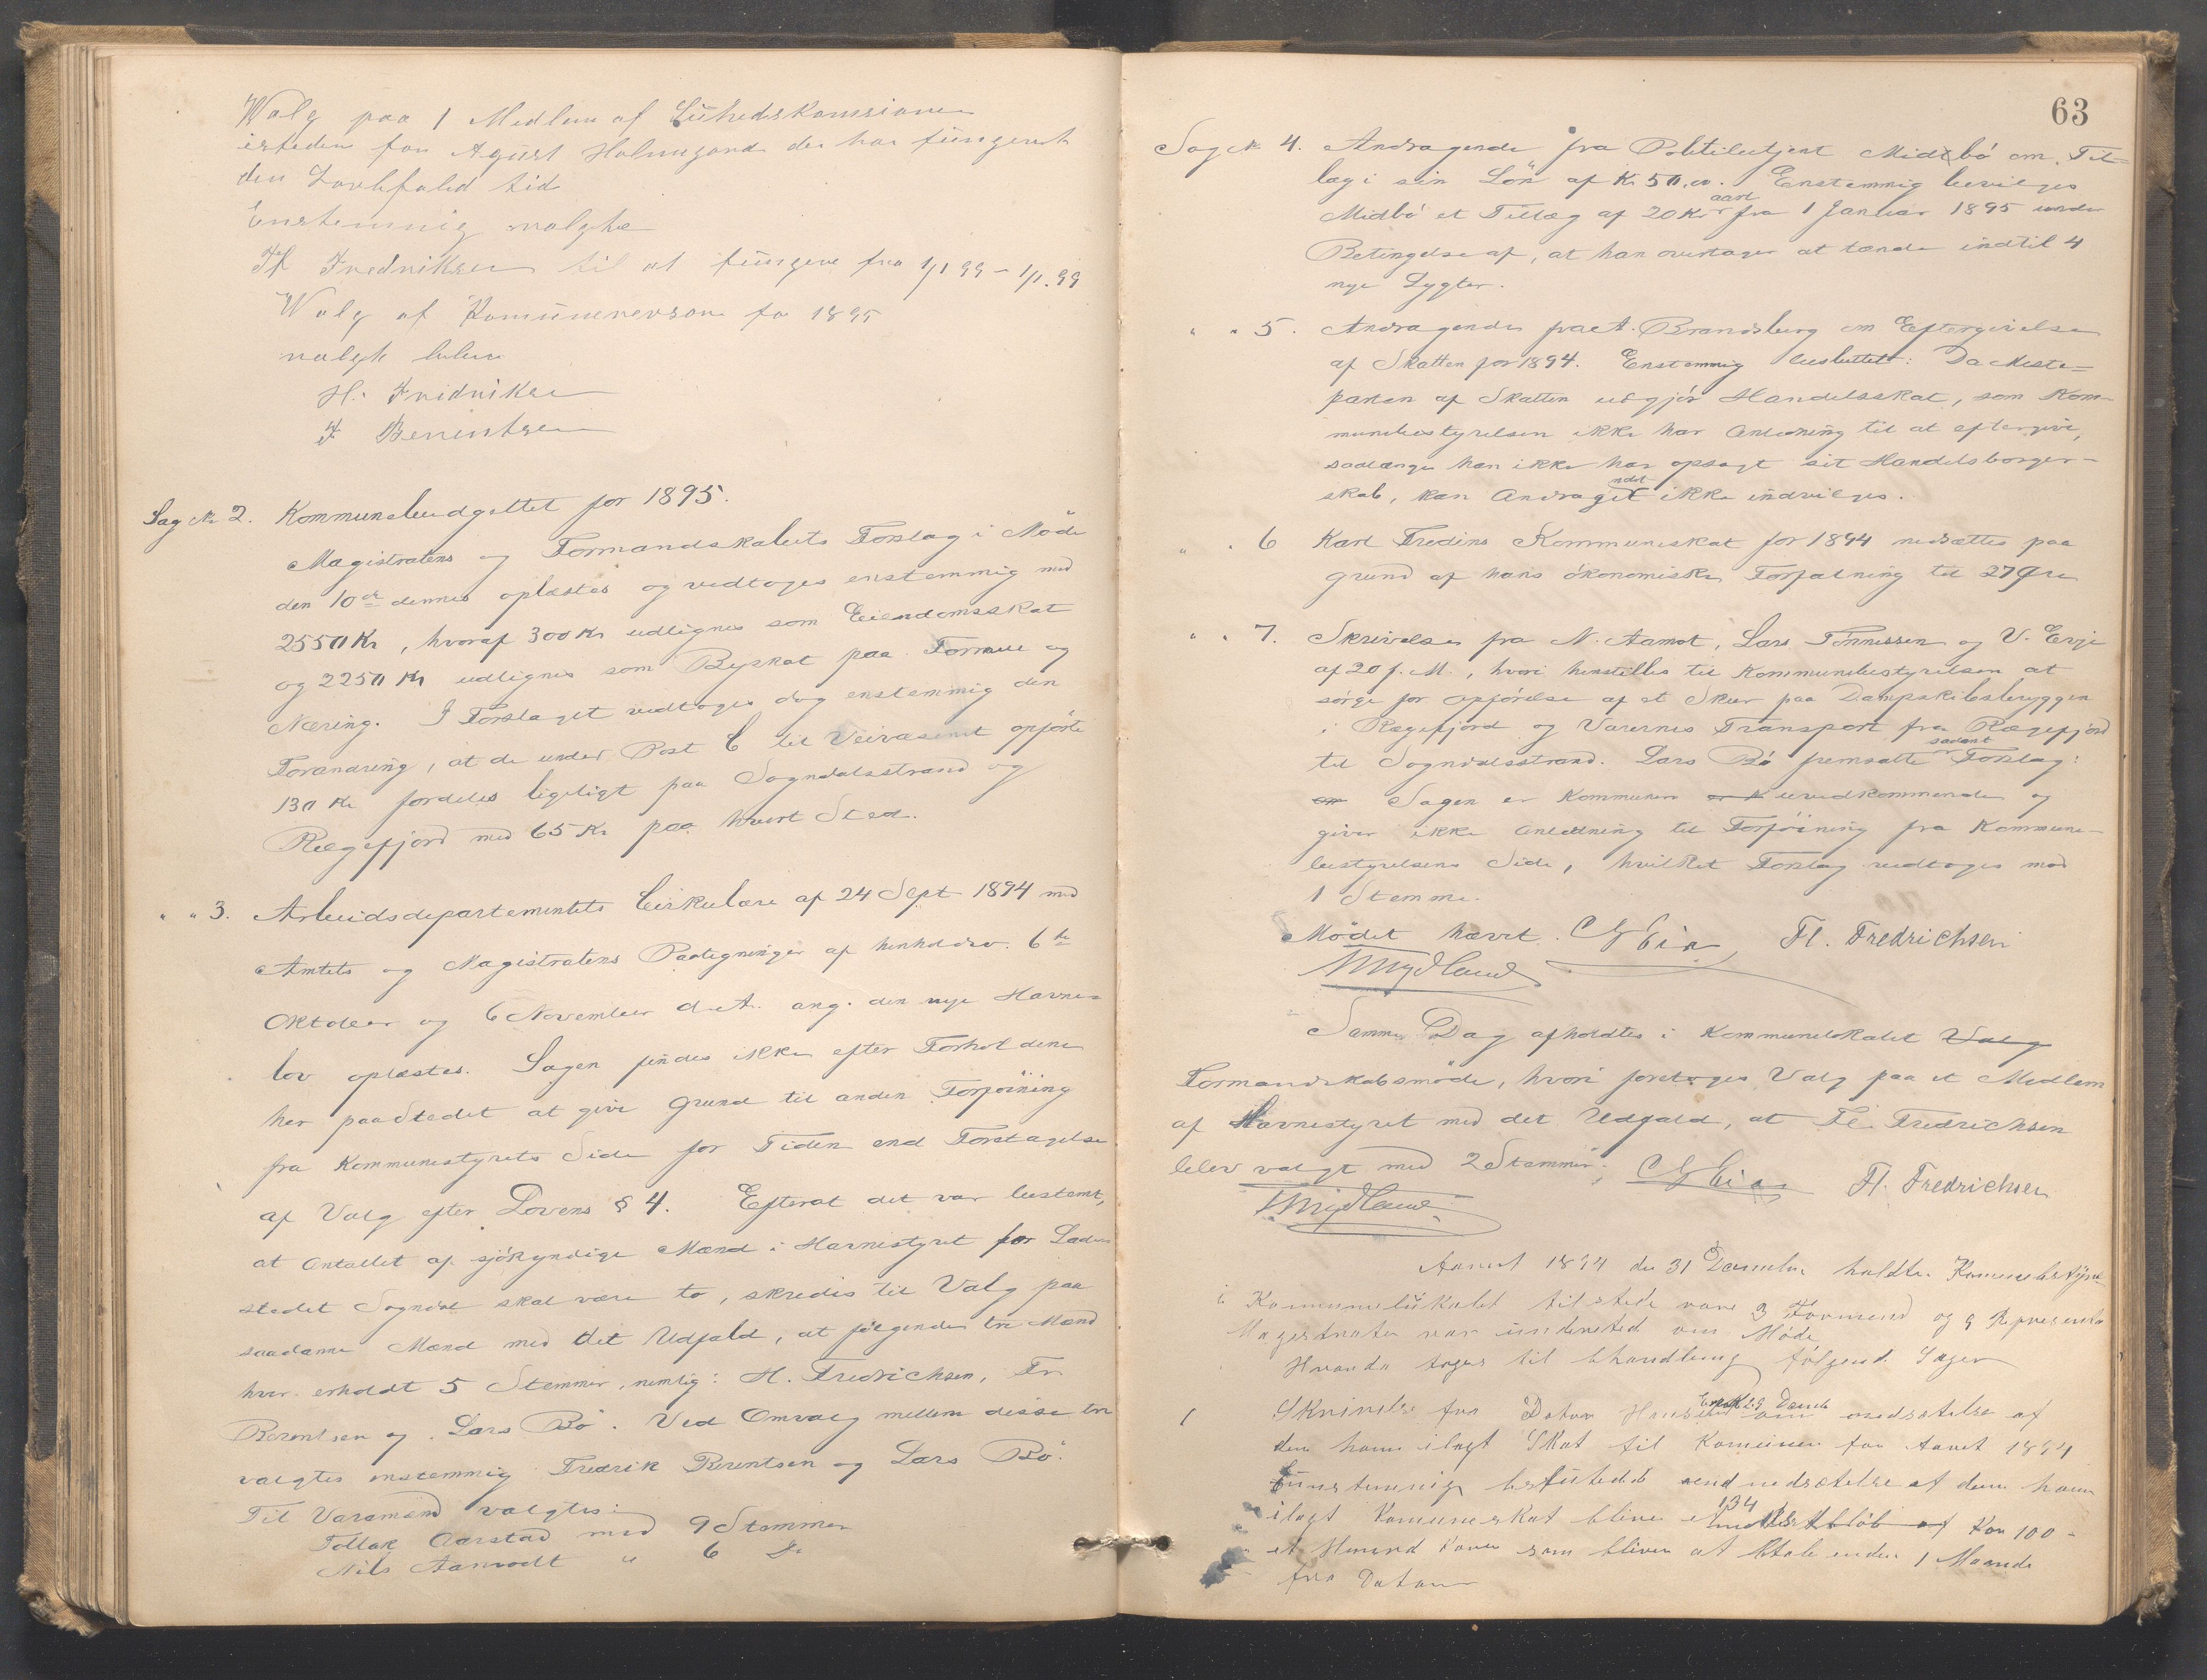 Walg paa 1 Medlem af Sünhedskomsionen
istedin for Agüst Holmgaard der har füngeret
den Lovbefaled tid
Enstemmig valgtes
Fl Fredriksen til at füngere fra 1/1 95 - 1/1.99
Walg af Komünerevsorer for 1895
valgk bleve
H. Fridriksen
F Berentsen
Sag № 2. Kommunebudgettet for 1895.
Magistratens og Formandskabets Forslag i Møde
den 10de dennes oplæstes og vedtoges enstemmig med
2550 Kr, hvoraf 300 Kr udlignes som Eiendomsskat
og 2250 Kr udlignes som Byskat paa Formue og
Næring. I Forslaget vedtoges dog enstemmig den
Forandring, at de under Post 6 til Veivæsenet opførte
130 Kr fordeles ligeligt paa Sogndalsstrand og
Rægefjord med 65 Kr paa hvert Sted.
" " 3. Arbeidsdepartementets Cirkulære af 24 Sept 1894 med
Amtets og Magistratens Paategninger af henholdsv. 6te
Oktober og 6 November d. A. ang. den nye Havne-
lov oplæstes. Sagen findes ikke efter Forholdene
her paa Stedet at give Grund til anden Forføining
fra Kommunestyrets Side for Tiden end Foretagelse
af Valg efter Lovens § 4. Efterat det var bestemt,
at Antallet af sjøkyndige Mænd i Havnestyret for Lade-
stedet Sogndal skal være to, skredes til Valg paa
saadanne Mænd med det Udfald, at følgende tre Mænd
hver erholdt 5 Stemmer, nemlig: H. Fredrichsen, Fr.
Berentsen og Lars Bø. Ved Omvalg mellem disse tre
valgtes enstemmig Fredrik Berentsen og Lars Bø.
Til Varamænd valgtes:
Tollak Aarstad med 9 Stemmer
Nils Aamodt " 6 Do
63
Sag № 4. Andragende fra Politibetjent Midtbø om Til-
læg i sin Løn af Kr 50.00. Enstemmig bevilges
Midbø et Tillæg af 20 Kr aarl fra 1 Januar 1895 under
Betingelse af, at han overtager at tænde indtil 4
nye Lygter.
" " 5. Andragende fra A. Brandsberg om Eftergivelse
af Skatten for 1894. Enstemmig besluttet: Da Meste-
parten af Skatten udgjør Handelsskat, som Kom-
munebestyrelsen ikke har Anledning til at eftergive,
saalænge han ikke har opsagt sit Handelsborger-
skab, kan Andragendet ikke indvilges.
" " 6 Karl Fredins Kommuneskat for 1894 nedsættes paa
Grund af hans økonomiske Forfatning til 27 Øre
" " 7. Skrivelse fra N. Aamot, Lars Tønnessen og V. Eeje
af 20 f. M., hvori henstilles til Kommunebestyrelsen at
sørge for Opførelse af et Skur paa Dampskibsbryggen
i Rægefjord og Varernes Transport fra Rægefjord
til Sogndalsstrand. Lars Bø fremsatte sadant Forslag:
Sagen er Kommunen uvedkommende og
giver ikke Anledning til Forføining fra Kommune-
bestyrelsens Side, hvilket Forslag vedtoges mod
1 Stemme.
Mødet hævet. C G Eia Fl. Fredrichsen
Mydland
Samme Dag afholdtes i Kommunelokalet Valg
Formandskabsmøde, hvori foretoges Valg paa et Medlem
af Havnestyret med det Udfald, at Fl. Fredrichsen
blev valgt med 2 Stemmer. C G Eia Fl. Fredrichsen
Mydland
Aaret 1894 den 31 Desember holdtes Komunebstyre
i Kommunelükalet tilstede vare 3 Formend og 9 Represente
Magestraten var ünderetted om Møde
Hvorda toges til bhandling følgende Sager
1 Skrivelse fra Doktor Hansen om nedsetelse af
den ham ilagt Skat til Komünen for Aaret 1894
Eünstemmig besluteded nedsætelse af den ham
ilagt Komüneskat bliver et 134 Kr 100 -
et Hunred Kroner som bliver at btale inden 1 Maaned
fra Datoen